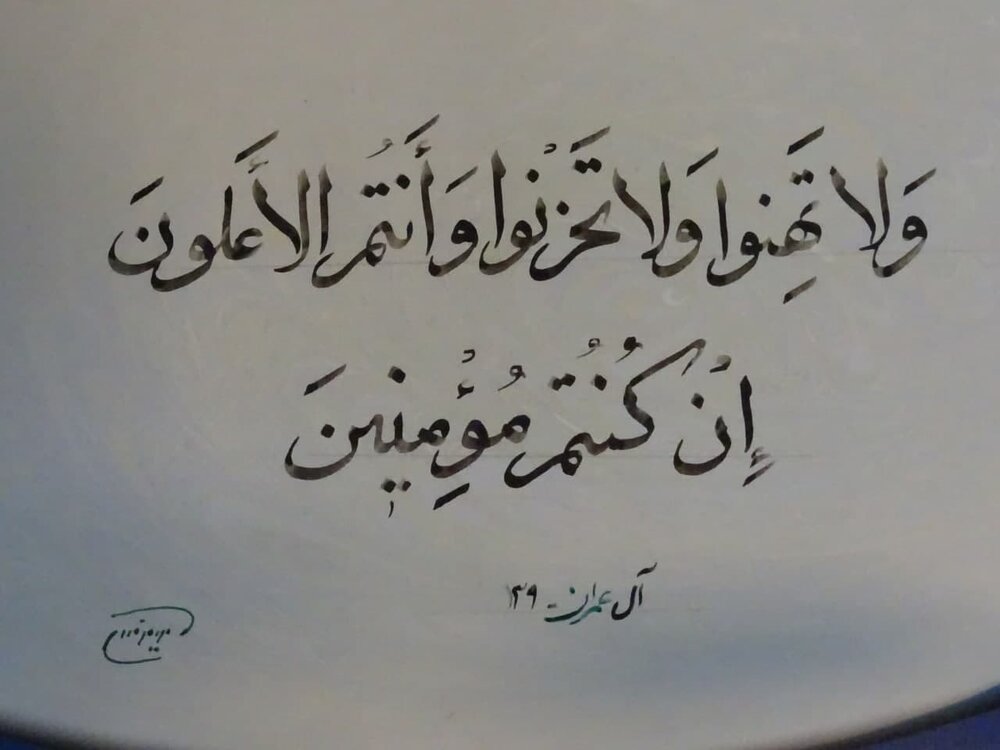 وَلَا تَهِنوا وَلَا تَحزَنْوا وَأَنتُم الأَعلونَ
إِنْ كُنْتُم مُؤْمِنِينَ
آل عمران ١٣٩